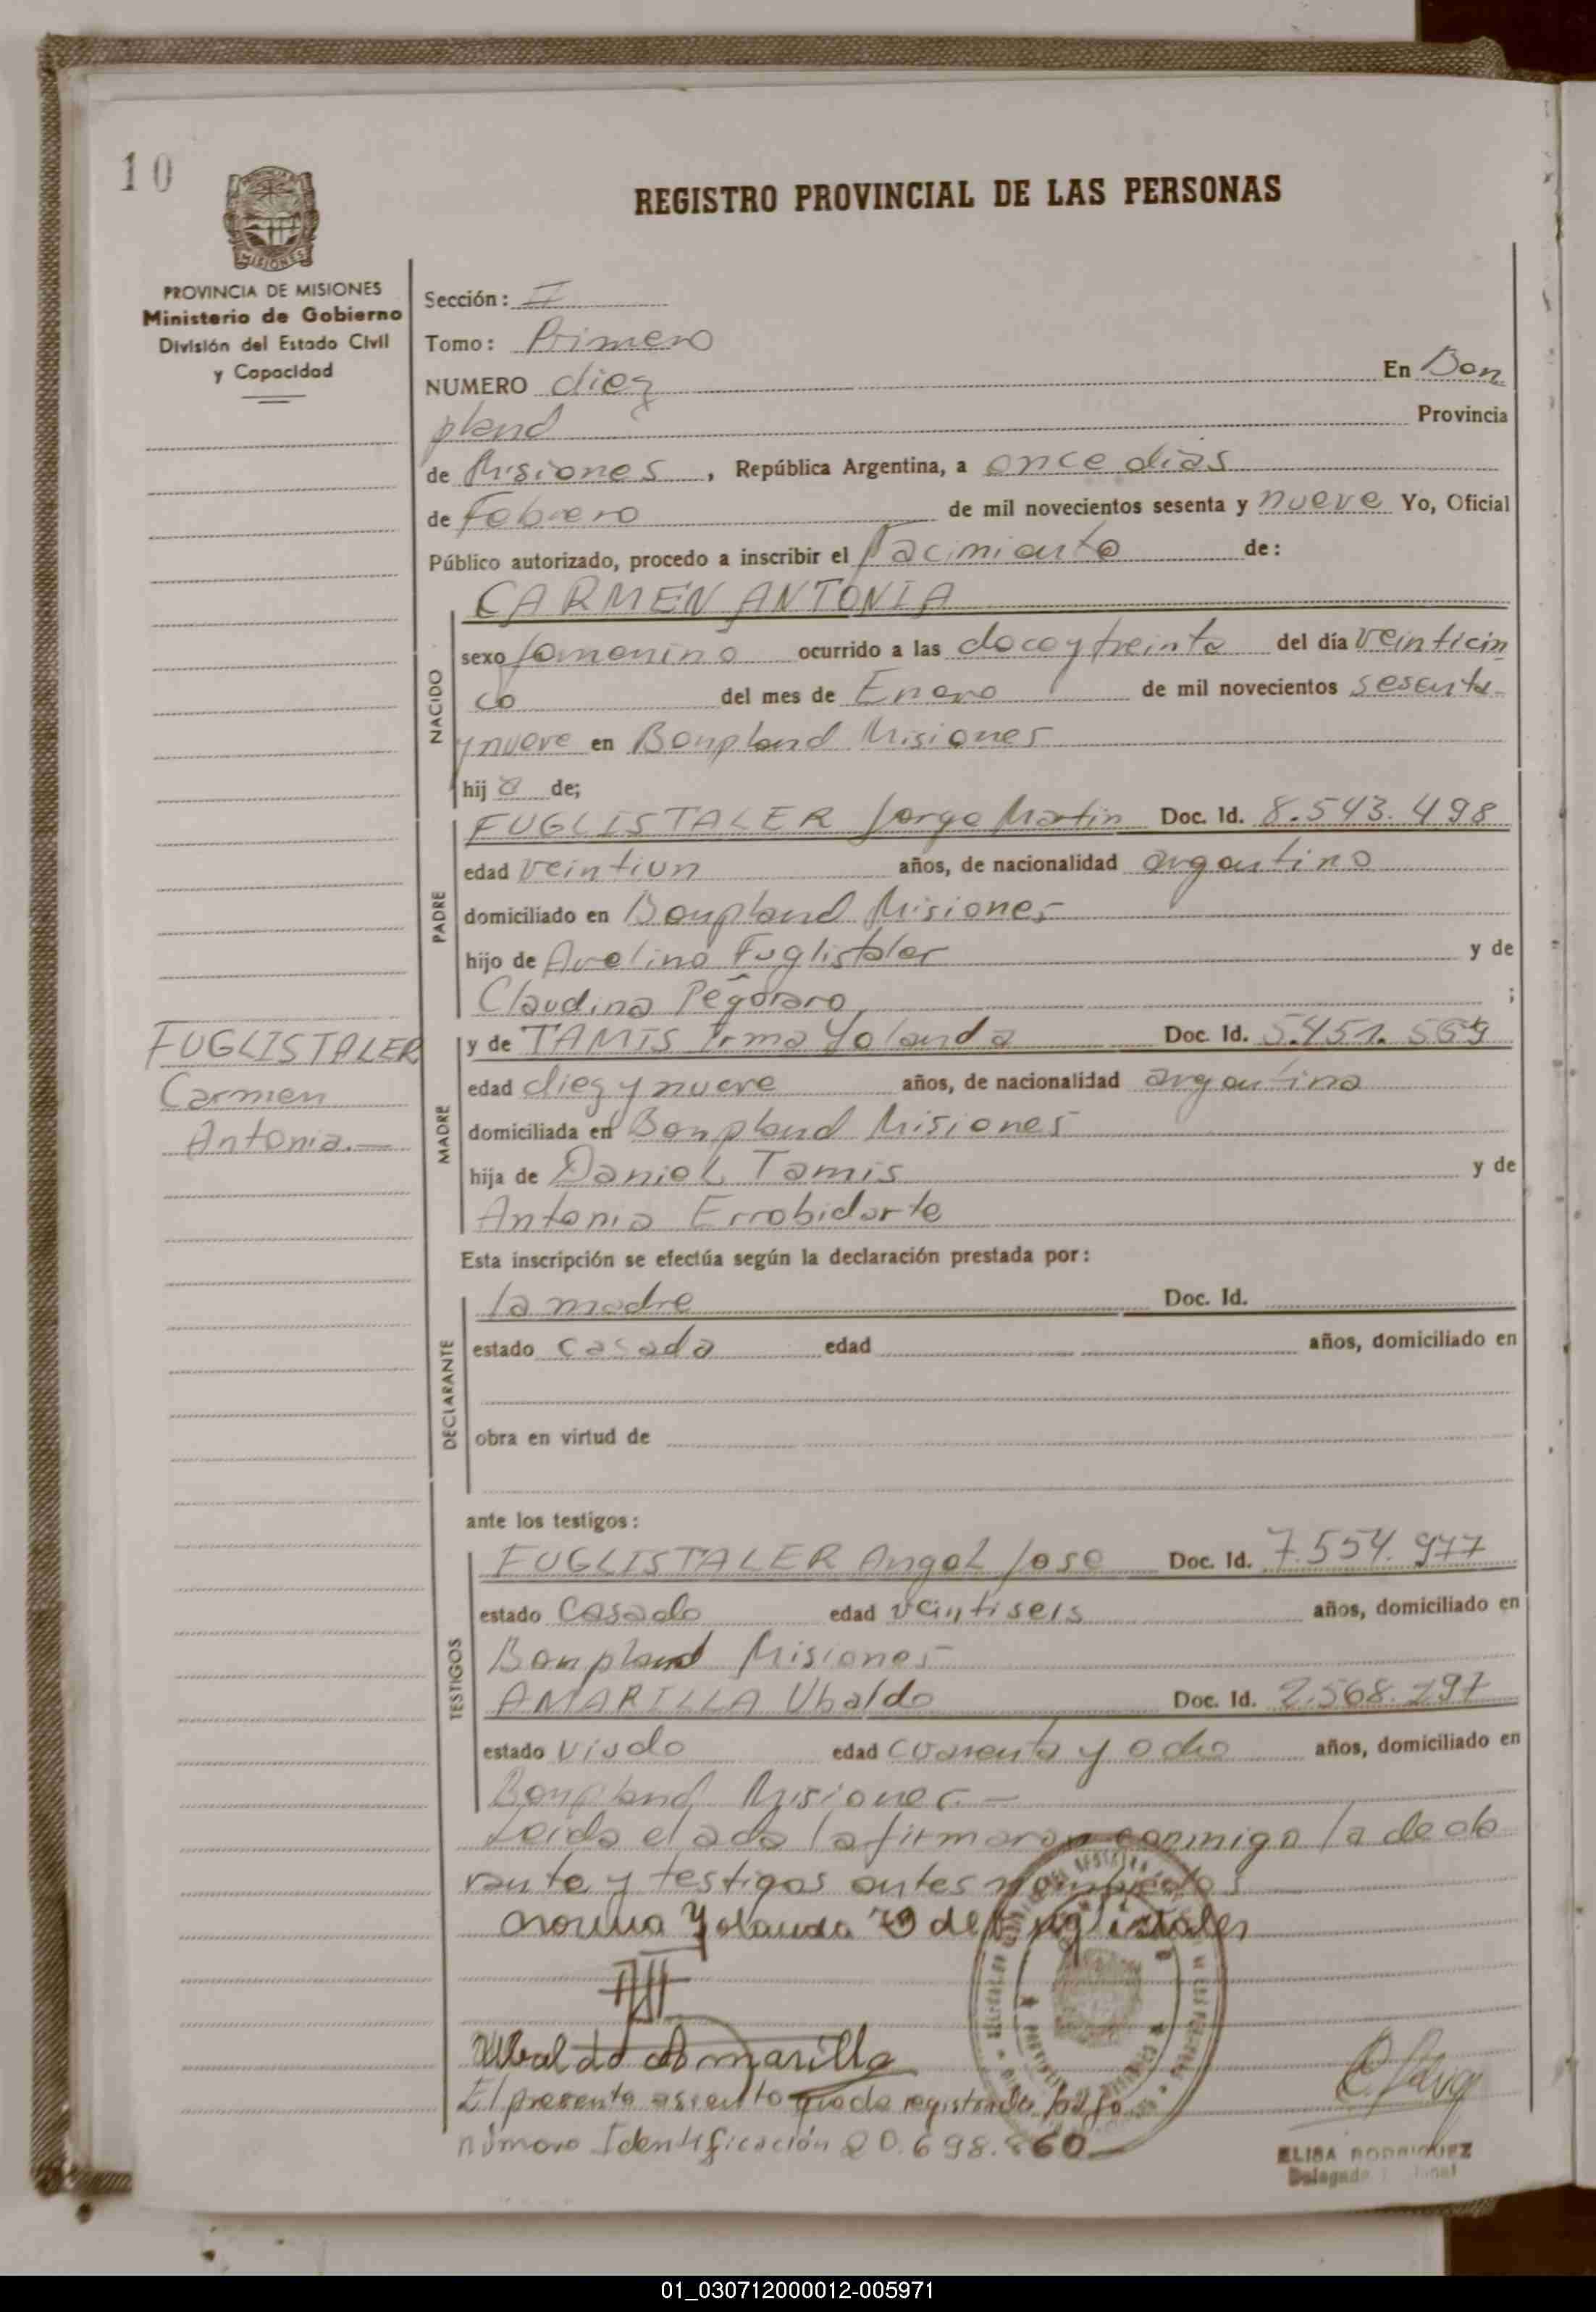 10
REGISTRO PROVINCIAL DE LAS PERSONAS
MISIONES
PROVINCIA DE MISIONES
Ministerio de Gobierno
División del Estado Civil
y Capacidad
Sección: I
Tomo: Primero
NUMERO diez En Bon
pland Provincia
de Misiones, República Argentina, a once dias
de Febrero de mil novecientos sesenta y nueve Yo, Oficial
Público autorizado, procedo a inscribir el Nacimiento de:
CARMEN ANTONIA
NACIDO
sexo femenino ocurrido a las doce y treinta del día veinticin
co del mes de Enero de mil novecientos sesenta
y nueve en Bonpland Misiones
hija de;
PADRE
FUGLISTALER Jorge Martin Doc. Id. 8.543.498
edad veintiun años, de nacionalidad argentino
domiciliado en Bonpland Misiones
hijo de Avelino Fuglistaler y de
Claudina Pegoraro ;
FUGLISTALER
Carmen
Antonia.—
MADRE
y de TAMIS Irma Yolanda Doc. Id.
edad diez y nueve años, de nacionalidad argentina
domiciliada en Bonpland Misiones
hija de Daniel Tamis y de
Antonia Errobidarte
Esta inscripción se efectúa según la declaración prestada por:
DECLARANTE
la madre Doc. Id.
estado casada edad años, domiciliado en
obra en virtud de
ante los testigos:
TESTIGOS
FUGLISTALER Angel Jose Doc. Id. 7.554.977
estado casado edad veintiseis años, domiciliado en
Bonpland Misiones
AMARILLA Ubaldo Doc. Id. 2.568.297
estado viudo edad cuarenta y ocho años, domiciliado en
Bonpland Misiones.—
Leida el acta la firmaron conmigo la decla
rante y testigos antes nombrados
Yolanda de Fuglistaler
Ubaldo Amarilla
El presente asiento queda registrado bajo
número Identificación 20.698.860
ELISA RODRIGUEZ
01_030712000012-005971